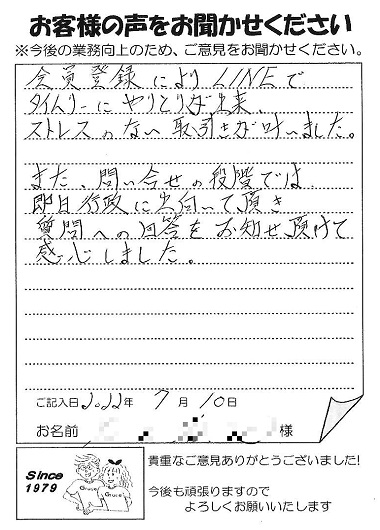 お客様の声をお聞かせください
※今後の業務向上のため、ご意見をお聞かせください。
会員登録によりLINEで
タイムリーにやりとりが出来、
ストレスのない取引きが叶いました。
また、問い合せの段階では
即日行政に出向いて頂き
質問への回答をお知せ頂けて
感心しました。
ご記入日2022年 7月 10日
お名前 様
Since
1979
Grace
Grace
貴重なご意見ありがとうございました!
今後も頑張りますので
よろしくお願いいたします